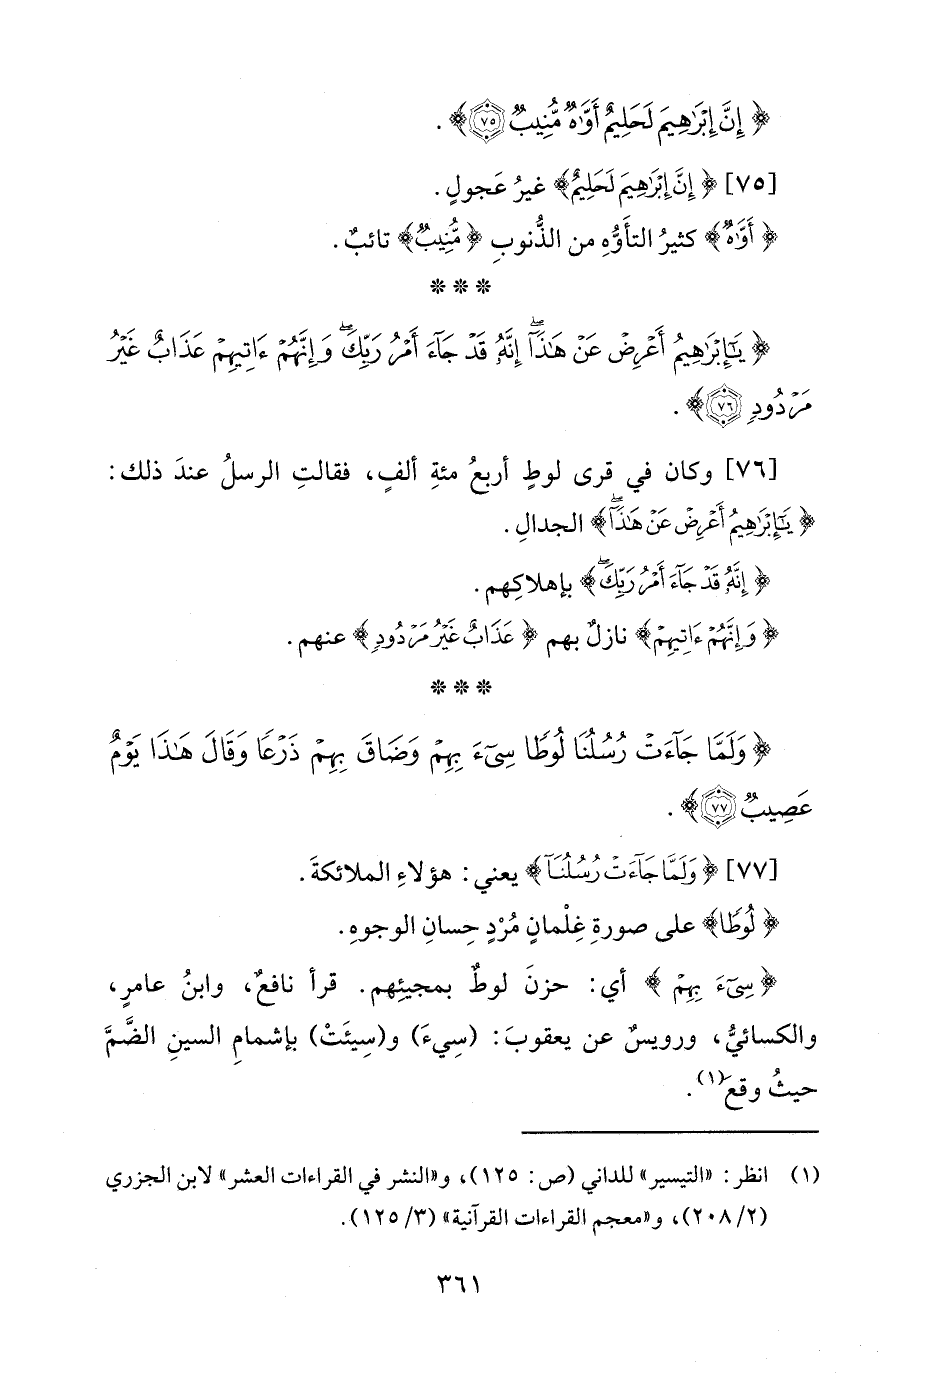 ﴿ إِنَّ إِبْرَٰهِيمَ لَحَلِيمٌ أَوَّٰهٌ مُّنِيبٌ ٧٥ ﴾ .
[٧٥] ﴿ إِنَّ إِبْرَٰهِيمَ لَحَلِيمٌ ﴾ غيرُ عَجولٍ .
﴿ أَوَّٰهٌ ﴾ كثيرُ التأوُّهِ من الذُّنوبِ ﴿ مُّنِيبٌ ﴾ تائبٌ .
❊ ❊ ❊
﴿ يَٰٓإِبْرَٰهِيمُ أَعْرِضْ عَنْ هَٰذَآ ۖ إِنَّهُۥ قَدْ جَآءَ أَمْرُ رَبِّكَ ۖ وَإِنَّهُمْ ءَاتِيهِمْ عَذَابٌ غَيْرُ
مَرْدُودٍ ٧٦ ﴾ .
[٧٦] وكان في قرى لوطٍ أربعُ مئةِ ألفٍ، فقالتِ الرسلُ عندَ ذلك:
﴿ يَٰٓإِبْرَٰهِيمُ أَعْرِضْ عَنْ هَٰذَآ ۖ ﴾ الجدالِ .
﴿ إِنَّهُۥ قَدْ جَآءَ أَمْرُ رَبِّكَ ۖ ﴾ بإهلاكِهم .
﴿ وَإِنَّهُمْ ءَاتِيهِمْ ﴾ نازلٌ بهم ﴿ عَذَابٌ غَيْرُ مَرْدُودٍ ﴾ عنهم .
❊ ❊ ❊
﴿ وَلَمَّا جَآءَتْ رُسُلُنَا لُوطًا سِيٓءَ بِهِمْ وَضَاقَ بِهِمْ ذَرْعًا وَقَالَ هَٰذَا يَوْمٌ
عَصِيبٌ ٧٧ ﴾ .
[٧٧] ﴿ وَلَمَّا جَآءَتْ رُسُلُنَآ ﴾ يعني: هؤلاءِ الملائكةَ .
﴿ لُوطًا ﴾ على صورةِ غِلْمانٍ مُرْدٍ حِسانِ الوجوهِ .
﴿ سِيٓءَ بِهِمْ ﴾ أي: حزنَ لوطٌ بمجيئِهم. قرأ نافعٌ، وابنُ عامرٍ،
والكسائيُّ، ورويسٌ عن يعقوبَ: (سِيءَ) و(سِيئَتْ) بإشمامِ السينِ الضَّمَّ
حيثُ وقعَ(١) .
(١) انظر: «التيسير» للداني (ص: ١٢٥)، و«النشر في القراءات العشر» لابن الجزري
(٢/ ٢٠٨)، و«معجم القراءات القرآنية» (٣/ ١٢٥).
٣٦١